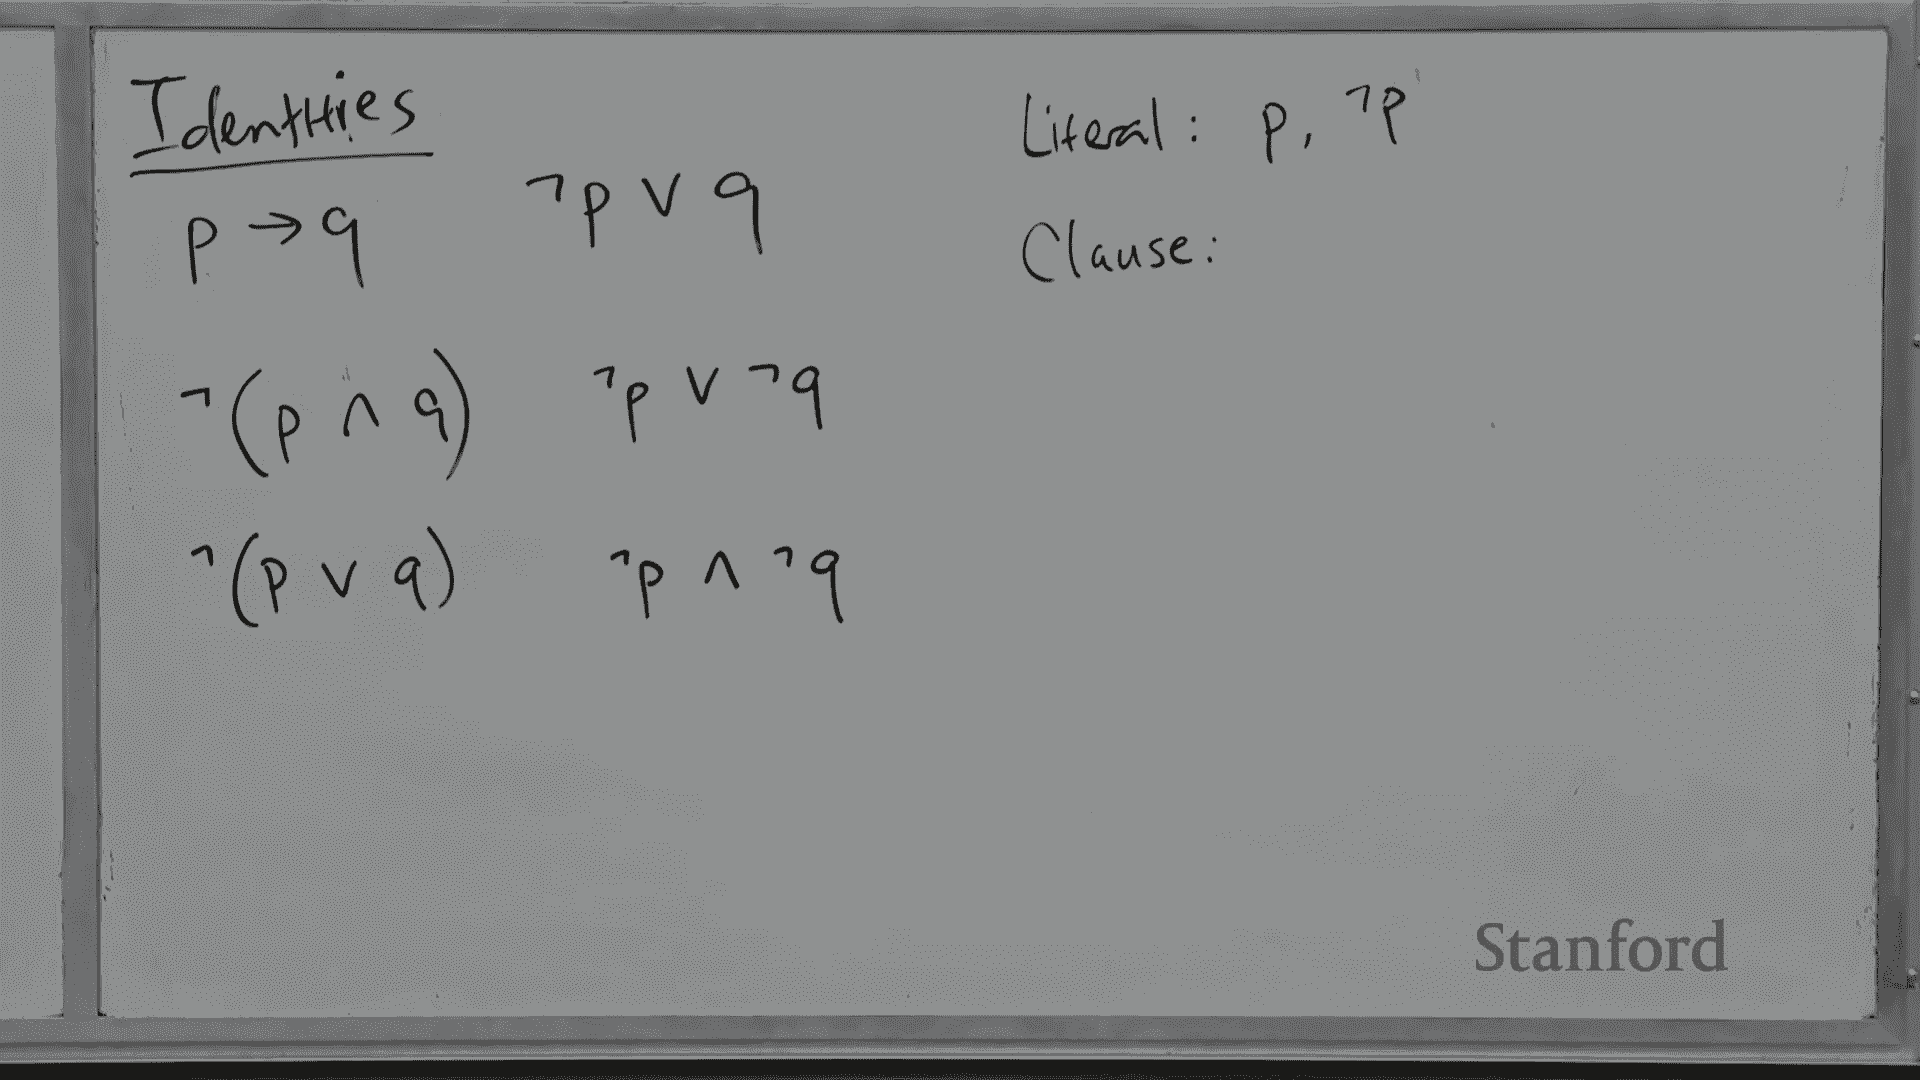 Identities
p → q    ¬p ∨ q
¬(p ∧ q)    ¬p ∨ ¬q
¬(p ∨ q)    ¬p ∧ ¬q
Literal: p, ¬p
Clause:
Stanford